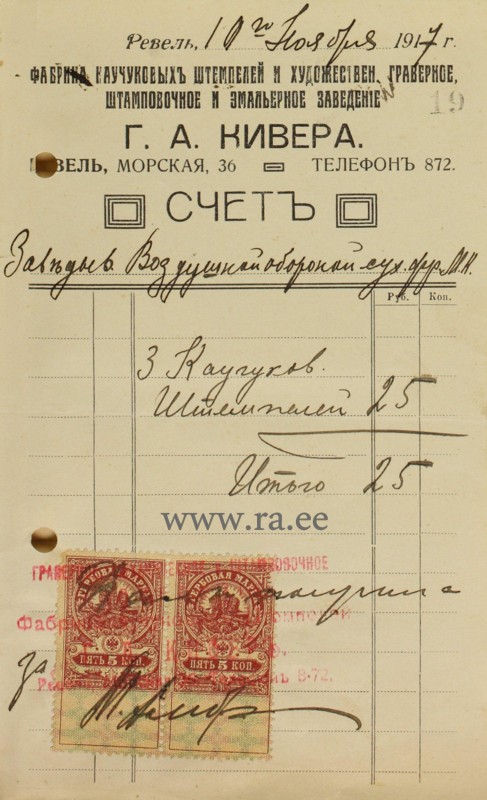 Ревель, 10го Ноября 1917 г.
ФАБРИКА КАУЧУКОВЫХЪ ШТЕМПЕЛЕЙ И ХУДОЖЕСТВЕН. ГРАВЕРНОЕ,
ШТАМПОВОЧНОЕ И ЭМАЛЬЕРНОЕ ЗАВЕДЕНІЕ
19
Г. А. КИВЕРА.
РЕВЕЛЬ, МОРСКАЯ, 36 ТЕЛЕФОНЪ 872.
СЧЕТЪ
Завѣдыв. Воздушной обороной сух. фр. М. К.
Руб. Коп.
3 Каучуков.
Штемпелей 25
Итого 25
www.ra.ee
ГЕРБОВАЯ МАРКА ГЕРБОВАЯ МАРКА
ПЯТЬ 5 КОП. ПЯТЬ 5 КОП.
за